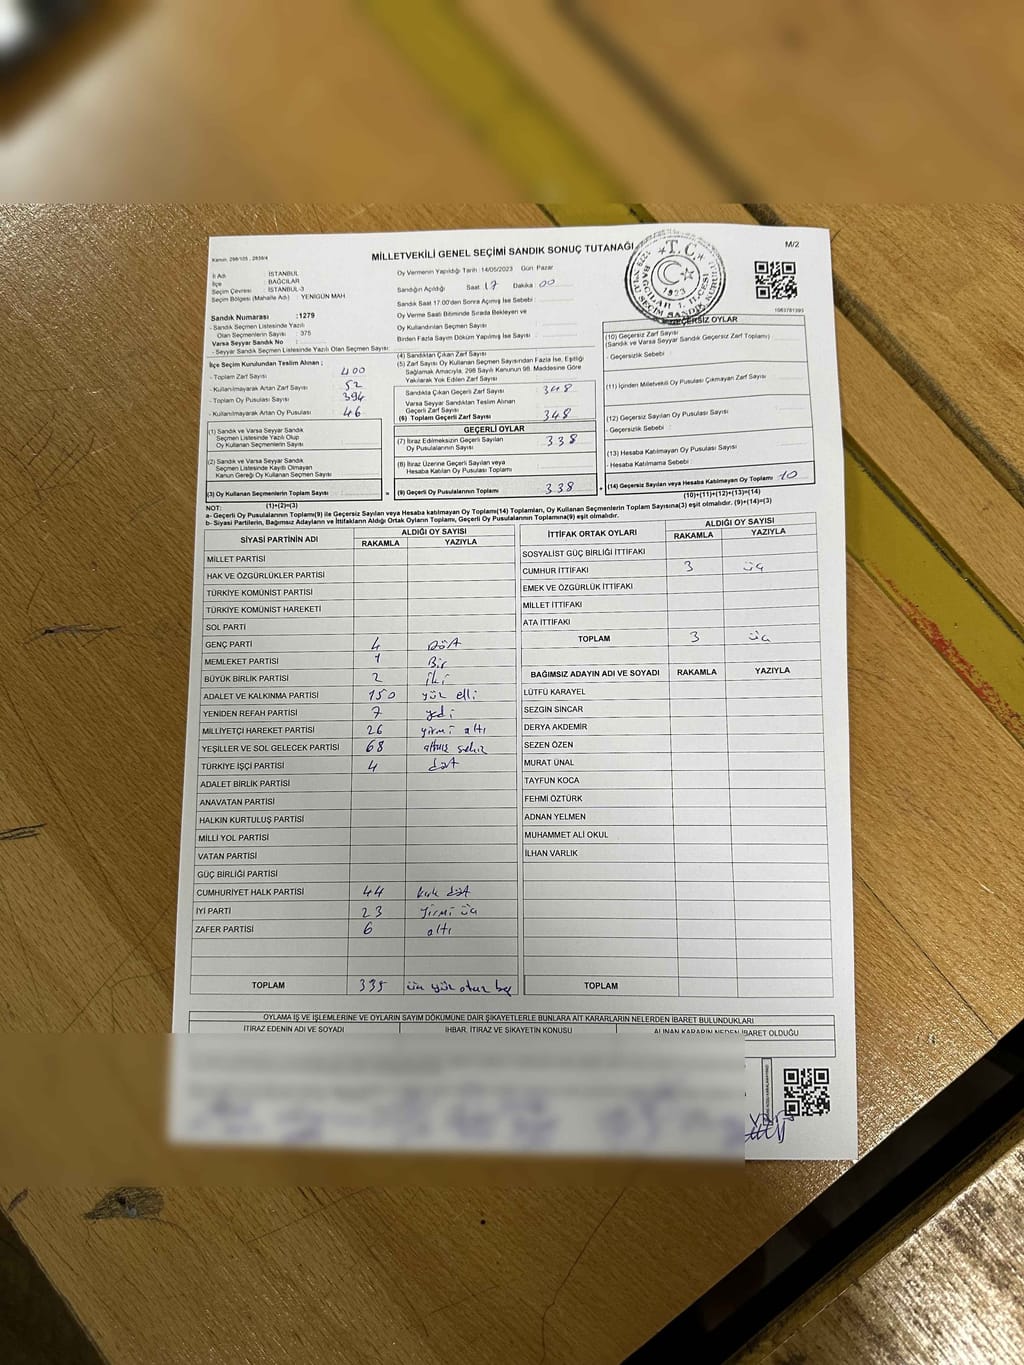 Kanun, 298/105 , 2839/4
MİLLETVEKİLİ GENEL SEÇİMİ SANDIK SONUÇ TUTANAĞI
M/2
İl Adı : İSTANBUL
İlçe : BAĞCILAR
Seçim Çevresi : İSTANBUL-3
Seçim Bölgesi (Mahalle Adı) : YENİGÜN MAH.
Sandık Numarası :1279
- Sandık Seçmen Listesinde Yazılı
Olan Seçmenlerin Sayısı : 375
Varsa Seyyar Sandık No :
- Seyyar Sandık Seçmen Listesinde Yazılı Olan Seçmen Sayısı:
Oy Vermenin Yapıldığı Tarih :14/05/2023 Gün: Pazar
Sandığın Açıldığı Saat 17 Dakika 00
Sandık Saat 17.00'den Sonra Açımış İse Sebebi :
Oy Verme Saati Bitiminde Sırada Bekleyen ve
Oy Kullandırılan Seçmen Sayısı :
Birden Fazla Sayım Döküm Yapılmış İse Sayısı :
T.C.
1923
BAĞCILAR 1. İLÇESİ
1063781393
İlçe Seçim Kurulundan Teslim Alınan ;
- Toplam Zarf Sayısı : 400
- Kullanılmayarak Artan Zarf Sayısı : 52
- Toplam Oy Pusulası Sayısı : 394
- Kullanılmayarak Artan Oy Pusulası : 46
(1) Sandık ve Varsa Seyyar Sandık
Seçmen Listesinde Yazılı Olup
Oy Kullanan Seçmenlerin Sayısı :
(2) Sandık ve Varsa Seyyar Sandık
Seçmen Listesinde Kayıtlı Olmayan
Kanun Gereği Oy Kullanan Seçmen Sayısı :
(3) Oy Kullanan Seçmenlerin Toplam Sayısı :
(1)+(2)=(3)
(4) Sandıktan Çıkan Zarf Sayısı
(5) Zarf Sayısı Oy Kullanan Seçmen Sayısından Fazla İse, Eşitliği
Sağlamak Amacıyla; 298 Sayılı Kanunun 98. Maddesine Göre
Yakılarak Yok Edilen Zarf Sayısı :
Sandıkta Çıkan Geçerli Zarf Sayısı : 348
Varsa Seyyar Sandıktan Teslim Alınan
Geçerli Zarf Sayısı :
(6) Toplam Geçerli Zarf Sayısı : 348
GEÇERLİ OYLAR
(7) İtiraz Edilmeksizin Geçerli Sayılan
Oy Pusulalarının Sayısı : 338
(8) İtiraz Üzerine Geçerli Sayılan veya
Hesaba Katılan Oy Pusulası Toplamı :
= (9) Geçerli Oy Pusulalarının Toplamı : 338
GEÇERSİZ OYLAR
(10) Geçersiz Zarf Sayısı
(Sandık ve Varsa Seyyar Sandık Geçersiz Zarf Toplamı) :
- Geçersizlik Sebebi :
(11) İçinden Milletvekili Oy Pusulası Çıkmayan Zarf Sayısı :
(12) Geçersiz Sayılan Oy Pusulası Sayısı :
- Geçersizlik Sebebi :
(13) Hesaba Katılmayan Oy Pusulası Sayısı :
- Hesaba Katılmama Sebebi :
+ (14) Geçersiz Sayılan veya Hesaba Katılmayan Oy Toplamı : 10
(10)+(11)+(12)+(13)=(14)
NOT:
a- Geçerli Oy Pusulalarının Toplamı(9) ile Geçersiz Sayılan veya Hesaba katılmayan Oy Toplam(14) Toplamları, Oy Kullanan Seçmenlerin Toplam Sayısına(3) eşit olmalıdır. (9)+(14)=(3)
b- Siyasi Partilerin, Bağımsız Adayların ve İttifakların Aldığı Ortak Oyların Toplamı, Geçerli Oy Pusulalarının Toplamına(9) eşit olmalıdır.
SİYASİ PARTİNİN ADI ALDIĞI OY SAYISI
RAKAMLA YAZIYLA
MİLLET PARTİSİ
HAK VE ÖZGÜRLÜKLER PARTİSİ
TÜRKİYE KOMÜNİST PARTİSİ
TÜRKİYE KOMÜNİST HAREKETİ
SOL PARTİ
GENÇ PARTİ 4 Dört
MEMLEKET PARTİSİ 1 Bir
BÜYÜK BİRLİK PARTİSİ 2 iki
ADALET VE KALKINMA PARTİSİ 150 yüz elli
YENİDEN REFAH PARTİSİ 7 yedi
MİLLİYETÇİ HAREKET PARTİSİ 26 yirmi altı
YEŞİLLER VE SOL GELECEK PARTİSİ 68 altmış sekiz
TÜRKİYE İŞÇİ PARTİSİ 4 dört
ADALET BİRLİK PARTİSİ
ANAVATAN PARTİSİ
HALKIN KURTULUŞ PARTİSİ
MİLLİ YOL PARTİSİ
VATAN PARTİSİ
GÜÇ BİRLİĞİ PARTİSİ
CUMHURİYET HALK PARTİSİ 44 kırk dört
İYİ PARTİ 23 yirmi üç
ZAFER PARTİSİ 6 altı
TOPLAM 335 üç yüz otuz beş
İTTİFAK ORTAK OYLARI ALDIĞI OY SAYISI
RAKAMLA YAZIYLA
SOSYALİST GÜÇ BİRLİĞİ İTTİFAKI
CUMHUR İTTİFAKI 3 üç
EMEK VE ÖZGÜRLÜK İTTİFAKI
MİLLET İTTİFAKI
ATA İTTİFAKI
TOPLAM 3 üç
BAĞIMSIZ ADAYIN ADI VE SOYADI RAKAMLA YAZIYLA
LÜTFÜ KARAYEL
SEZGİN SİNCAR
DERYA AKDEMİR
SEZEN ÖZEN
MURAT ÜNAL
TAYFUN KOCA
FEHMİ ÖZTÜRK
ADNAN YELMEN
MUHAMMET ALİ OKUL
İLHAN VARLIK
TOPLAM
OYLAMA İŞ VE İŞLEMLERİNE VE OYLARIN SAYIM DÖKÜMÜNE DAİR ŞİKAYETLERLE BUNLARA AİT KARARLARIN NELERDEN İBARET BULUNDUKLARI
İTİRAZ EDENİN ADI VE SOYADI İHBAR, İTİRAZ VE ŞİKAYETİN KONUSU ALINAN KARARIN NEDEN İBARET OLDUĞU